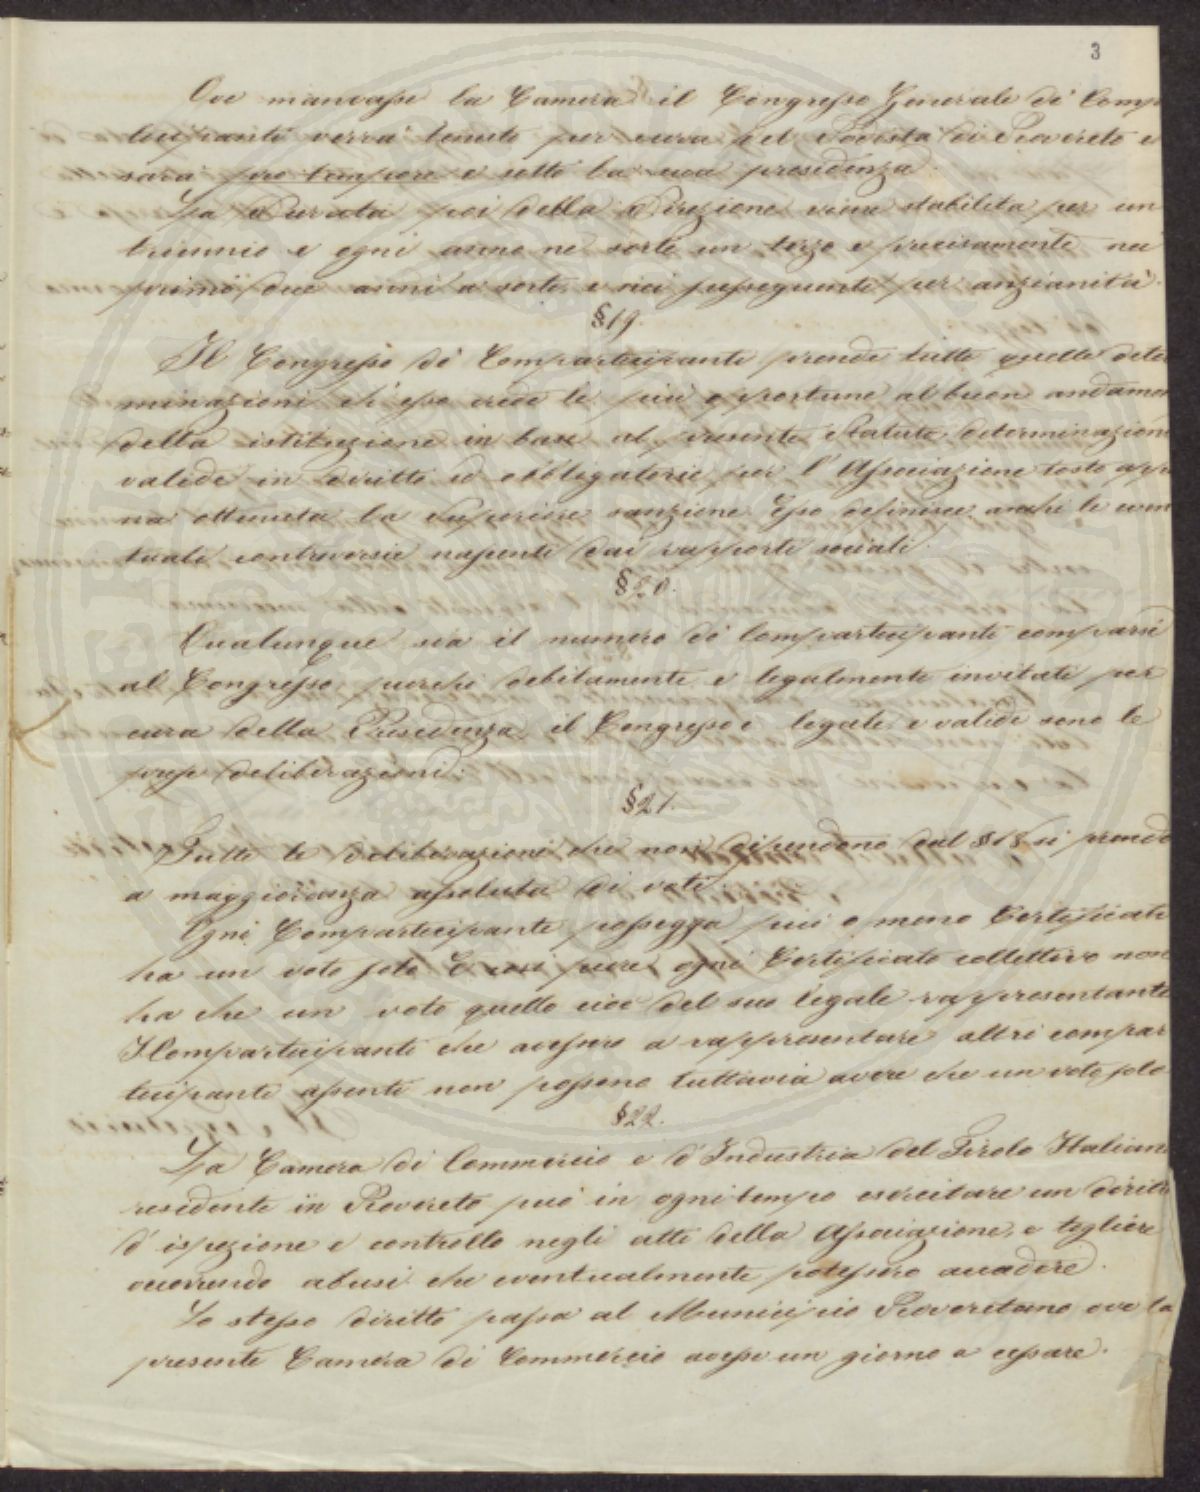 3
Ove mancasse la Camera il Congresso Generale di Comp
tecipanti verrà tenuto per cura del Podestà di Rovereto e
sarà pro tempore e sotto la sua presidenza.
La Durata poi della Direzione viene stabilita per un
triennio e ogni anno ne sorte un terzo e precisamente nei
primi due anni a sorte e nei susseguenti per anzianità.
§19.
Il Congresso di Compartecipanti prende tutte quelle deter
minazioni ch'esso crede le più opportune al buon andamen
della istituzione in base al presente Statuto, determinazioni
valide in diritto ed obbligatorie per l'Associazione tosto appe
na ottenuta la superiore sanzione. Esso definisce anche le even
tuali controversie nascenti dai rapporti sociali.
§20.
Qualunque sia il numero di Compartecipanti comparsi
al Congresso, purchè debitamente e legalmente invitati per
cura della Presidenza, il Congresso è legale, e valide sono le
prese deliberazioni.
§21.
Tutte le deliberazioni che non dipendono dal §18 si prendo
a maggioranza assoluta di voti.
Ogni Compartecipante possegga più o meno Certificati
ha un voto solo. E così pure ogni Certificato collettivo non
ha che un voto quello cioè del suo legale rappresentante
I Compartecipanti che avessero a rappresentare altri compar
tecipanti assenti non possono tuttavia avere che un voto solo
§22.
La Camera di Commercio e d'Industria del Tirolo Italiano
residente in Rovereto può in ogni tempo esercitare un diritto
d'ispezione e controllo negli atti della Associazione, e togliere
occorrendo abusi che eventualmente potessero accadere.
Lo stesso diritto passa al Municipio Roveretano ove la
presente Camera di Commercio avesse un giorno a cessare.